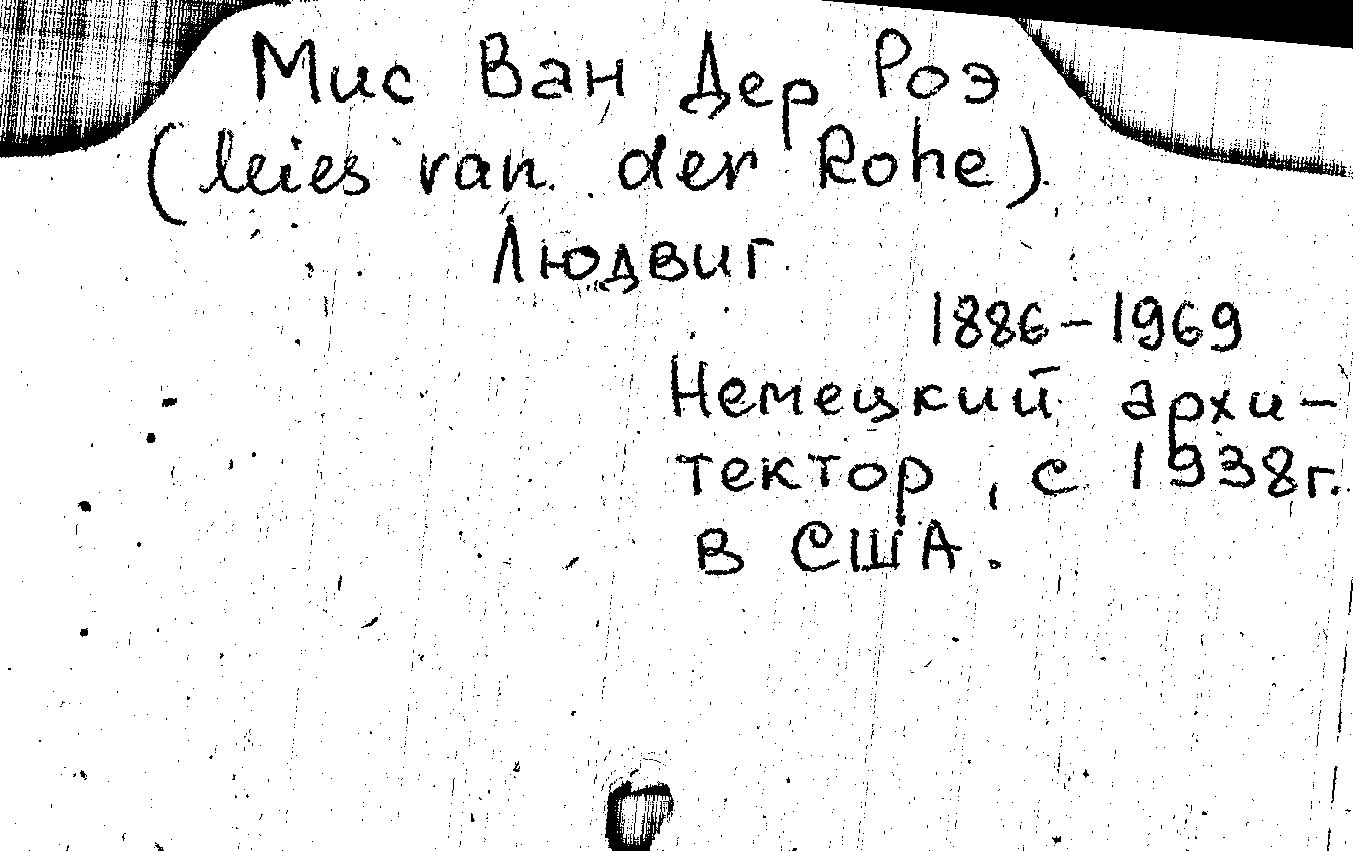 Мис Ван Дер Роэ
(Mies van der Rohe)
Людвиг
1886-1969
Немецкий архи-
тектор, с 1938г.
в США.